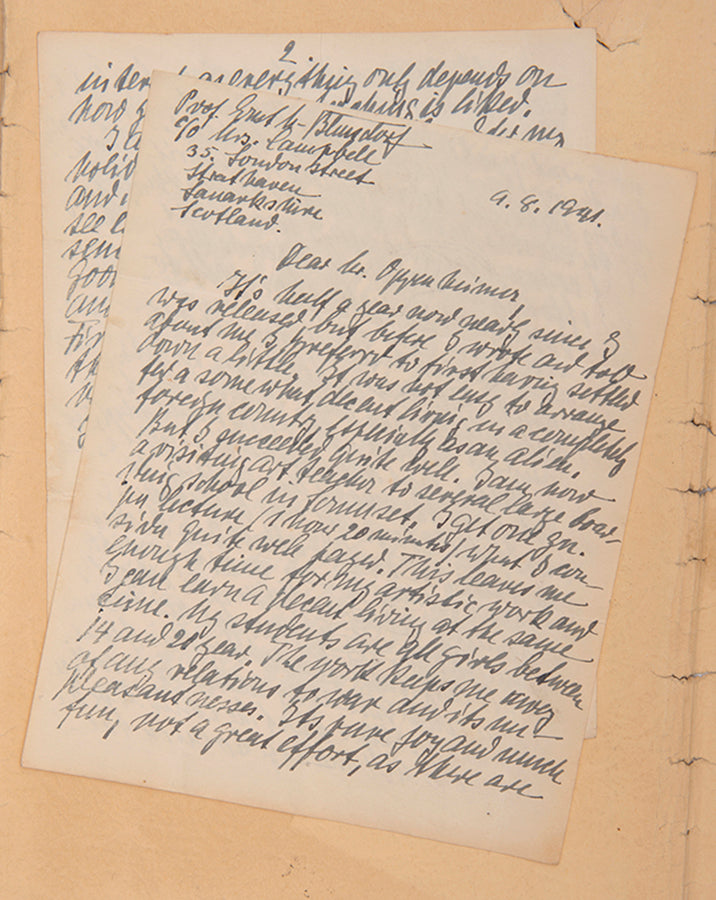 2.
interest as everything only depends on
how is liked.
Prof. Ernst M. Blensdorf
c/o Mrs. Campbell
35. London Street
Strathaven
Lanarkshire
Scotland.
9. 8. 1941.
Dear Mr. Oppenheimer,
It's half a year now nearly since I
was released but before I wrote and told
about me I preferred to first having settled
down a little. It was not easy to arrange
for a somewhat decent living in a completely
foreign country especially as an alien.
But I succeeded quite well. I am now
a visiting art teacher to several large boar-
ding school in Somerset. I get one gn.
per lecture (1 hour 20 minutes) what I con
sider quite well payed. This leaves me
enough time for my artistic work and
I can earn a decent living at the same
time. My students are all girls between
14 and 20 year. The work keeps me away
of any relations to war and its un-
pleasantnesses. Its pure joy and much
fun, not a great effort, as there are
holid
and
see
sem
good
and